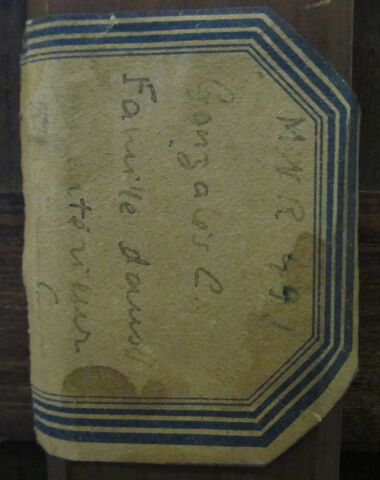 MNR 791
Gonzales C.
Famille dans
intérieur